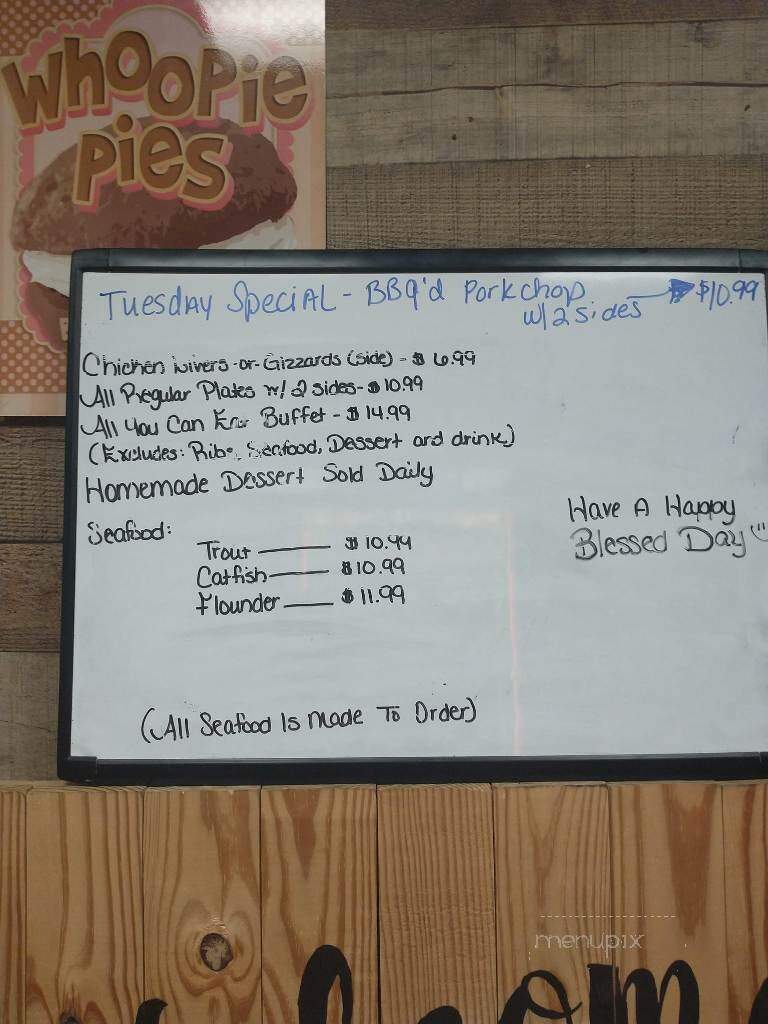 Whoopie
Pies
Tuesday Special - BBQ'd Porkchop
w/ 2 sides $10.99
Chicken Livers -or- Gizzards (side) - $ 6.99
All Regular Plates w/ 2 sides - $ 10.99
All You Can Buffet - $ 14.99
(Excludes: Ribs, Seafood, Dessert and drink)
Homemade Dessert Sold Daily
Have A Happy
Blessed Day
Seafood:
Trout $ 10.99
Catfish $10.99
Flounder $ 11.99
(All Seafood Is Made To Order)
menupix